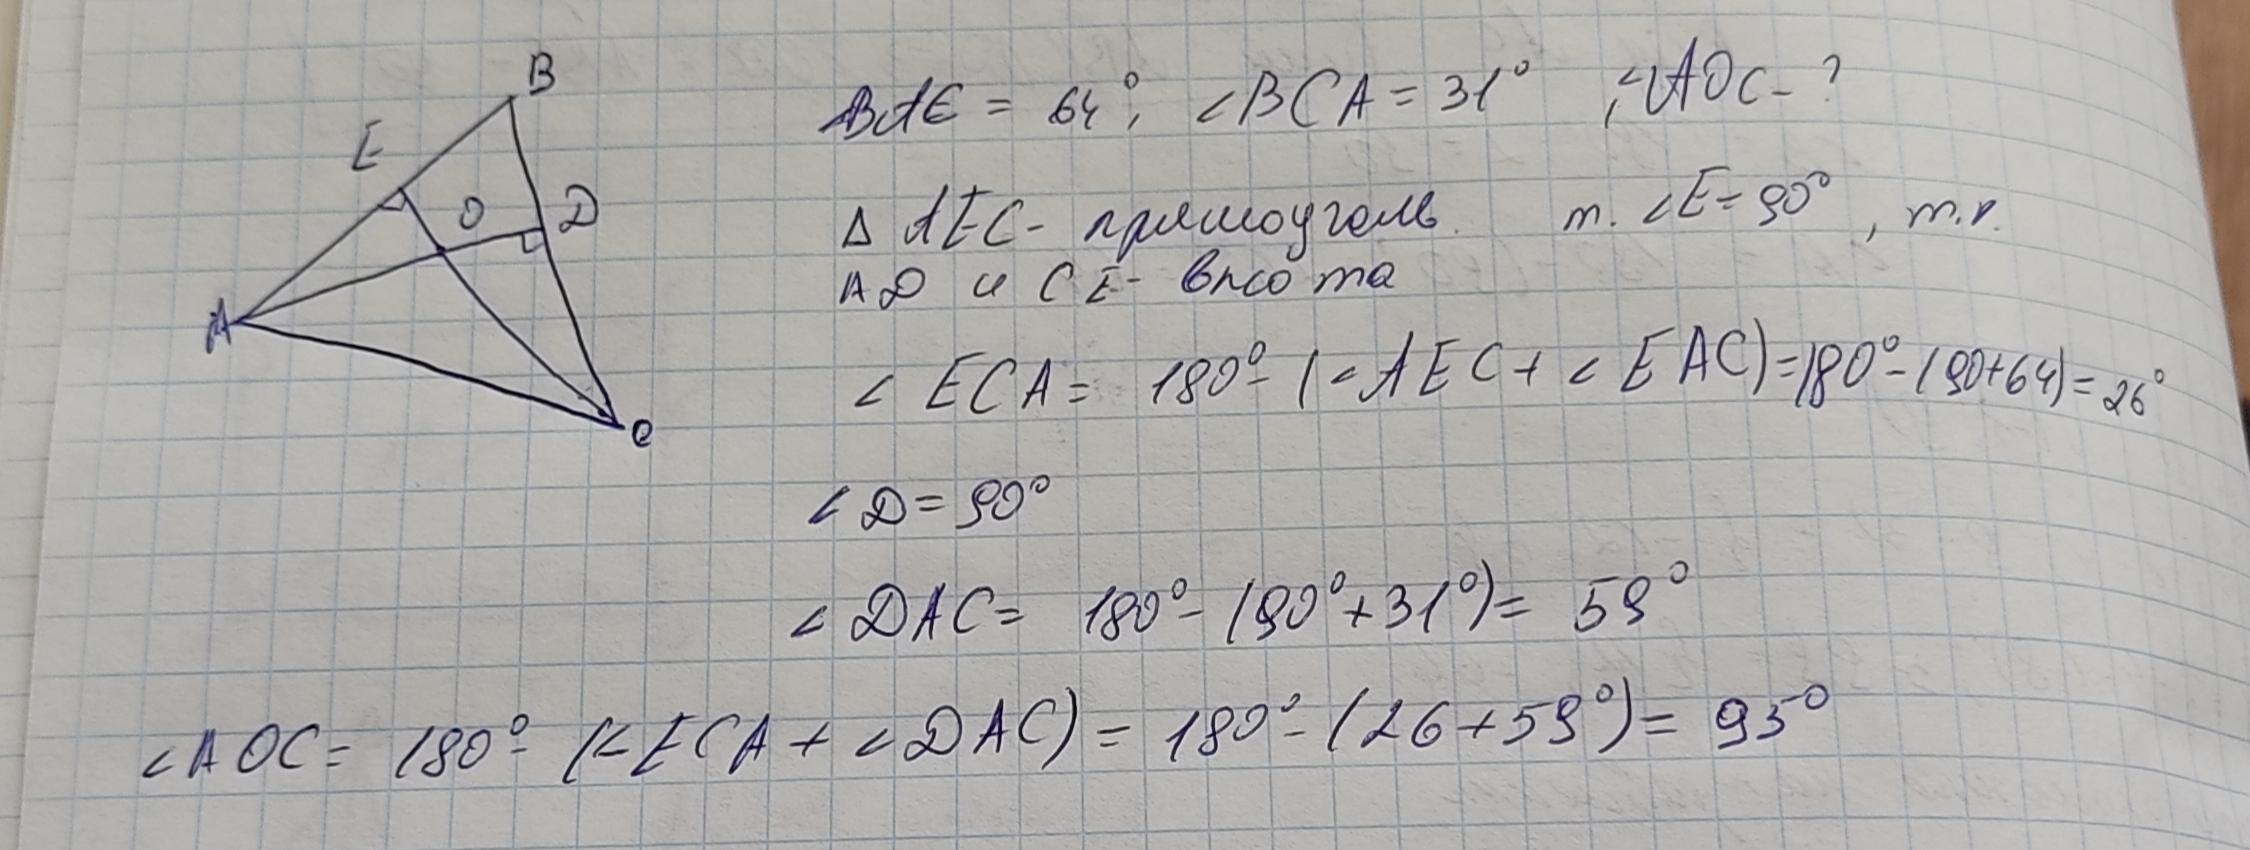 B
E
O
D
A
C
BAC = 64°; ∠BCA = 31° ; ∠AOC - ?
Δ AEC - прямоуголь. т. ∠E = 90°, т.к.
AD и CE - высота
∠ ECA = 180° - (∠AEC + ∠EAC) = 180° - (90+64) = 26°
∠D = 90°
∠DAC = 180° - (90° + 31°) = 59°
∠AOC = 180° - (∠ECA + ∠DAC) = 180° - (26 + 59°) = 95°